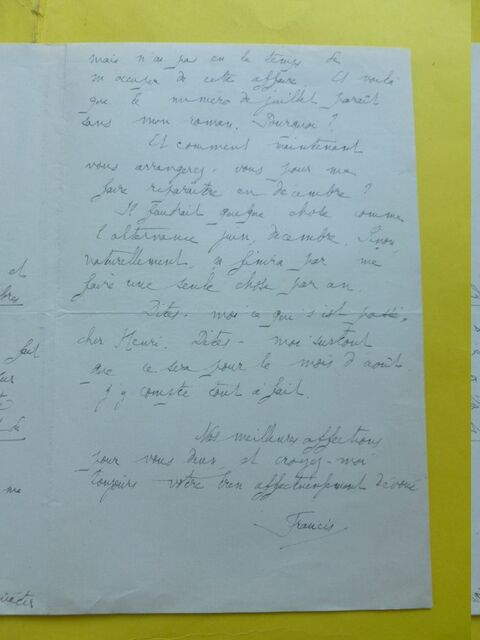 mais n'ai pas eu le temps de
m'occuper de cette affaire. Et voilà
que le numéro de juillet paraît
sans mon roman. Pourquoi?
Et comment maintenant
vous arrangerez-vous pour me
faire reparaître en décembre?
Il faudrait quelque chose comme
l'alternance juin, décembre. Sinon,
naturellement, ça finira par me
faire une seule chose par an.
Dites-moi ce qui s'est passé,
cher Henri. Dites-moi surtout
que ce sera pour le mois d'août.
J'y compte tout à fait.
Nos meilleures affections
pour vous deux, et croyez-moi
toujours votre bien affectueusement dévoué
Francis
et
fait
ma